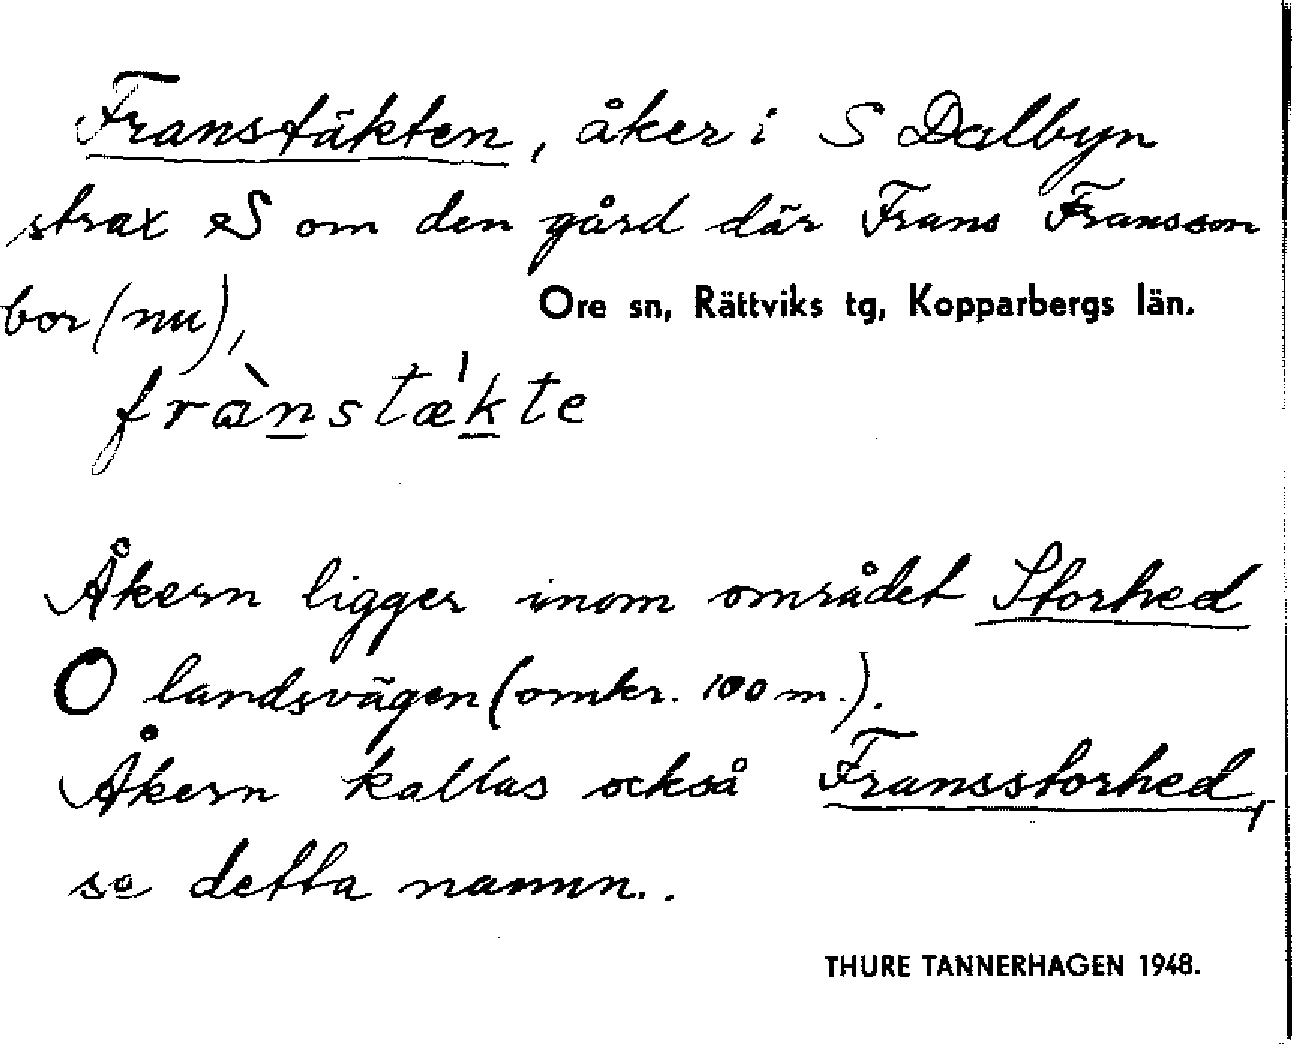 Franstäkten, åker i S Dalbyn
strax S om den gård där Frans Fransson
bor (nu),
Ore sn, Rättviks tg, Kopparbergs län.
fràns tæ'kte
Åkern ligger inom området Storhed
O landsvägen (omkr. 100 m.).
Åkern kallas också Fransstorhed,
se detta namn..
THURE TANNERHAGEN 1948.